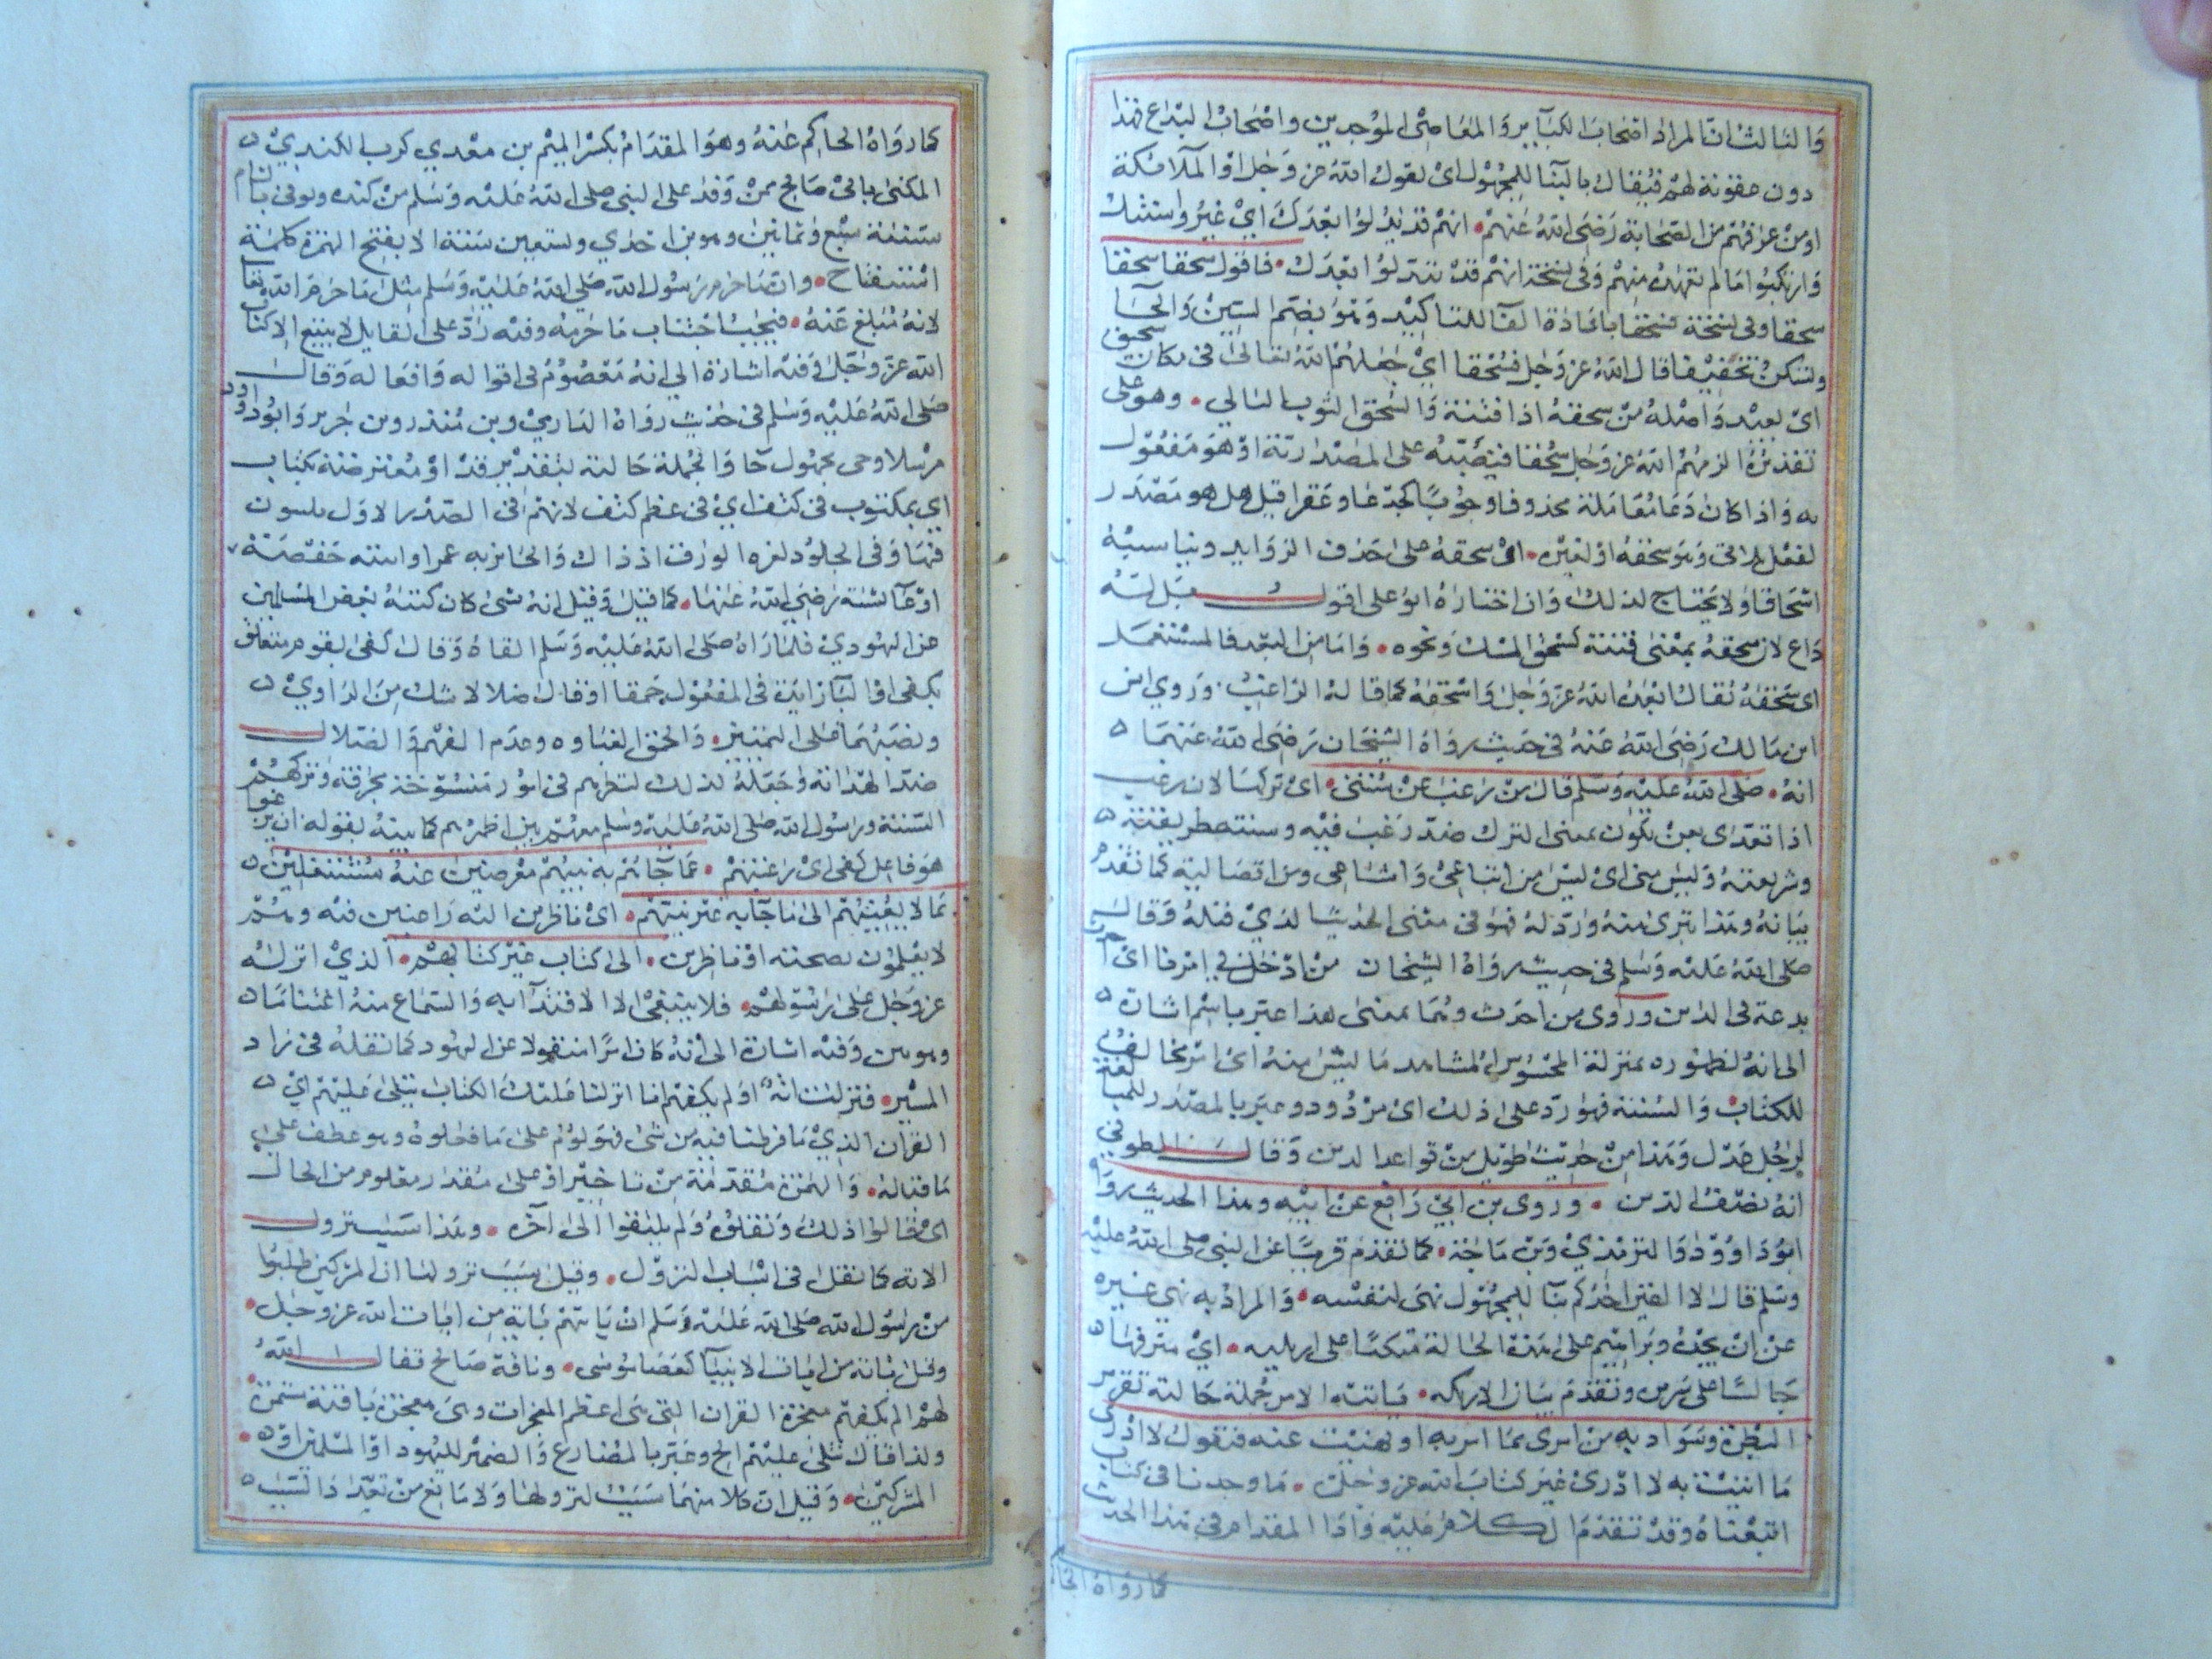 والثالث ان المراد اصحاب الكباير والمعاصى الموحدين واصحاب البدع فهذا
دون عقوبة لهم فيقال بالبنا للمجهول اى يقول الله عز وجل او الملائكة
او من عرفهم من الصحابة رضى الله عنهم انهم قد بدلوا بعدك اي غيروا سنتك
وارتكبوا ما لم تعهده منهم وفى نسخة انهم قد تبدلوا بعدك فاقول سحقا سحقا
سحقا وفى نسخة فسحقا باعادة الفآ للتاكيد وهو بضم السين والحآ
وتسكن تخفيفا قال الله عز وجل فسحقا اي جعلهم الله تعالى فى مكان سحيق
اى بعيد واصله من سحقه اذا فتته والسحق الثوب البالي وهو على
تقديره الزمهم الله عز وجل سحقا فنصبه على المصدرية او هو مفعول
به واذا كان دعا فعامله محذوفا وجوبا كجدعا وعقرا قيل هل هو مصدر
لفعل ثلاثى وهو سحقه او لغيره اى سحقه على حذف الزوايد وقياسه
اسحاقا ولا يحتاج لذلك وان اختاره ابو على اقول
داع لان سحقه بمعنى فتته كسحق المسك ونحوه واما من البعد فالمستعمل
اى سحقه يقال ابعده الله عز وجل واسحقه كما قاله الراغب وروي انس
ابن مالك رضى الله عنه فى حديث رواه الشيخان رضى الله عنهما
انه صلى الله عليه وسلم قال من رغب عن سنتى اى تركها لان رغب
اذا تعدى بعن تكون بمعنى الترك ضد رغب فيه وسنته طريقته
وشريعته فليس منى اى ليس من اتباعى واشياعى ومن اتصاليه كما تقدم
بيانه وهذا تبرى منه ورد له فهو فى معنى الحديث الذي قبله وقال
صلى الله عليه وسلم فى حديث رواه الشيخان من ادخل في امرنا اى
بدعة فى الدين وروى من احدث وهما بمعنى هذا عبر باسم اشارة
الى انه لظهوره بمنزلة المحسوس المشاهد ما ليس منه اى امر مخالف
للكتاب والسنة فهو رد على ذلك اى مردود وعبر بالمصدر للمبالغة
كرجل عدل وهذا من حديث طويل من قواعد الدين وقال الطوفي
انه نصف الدين وروى بن ابي رافع عن ابيه وهذا الحديث رواه
ابو داوود والترمذي وبن ماجة كما تقدم قريبا عن النبى صلى الله عليه
وسلم قال لا الفين احدكم بنآ للمجهول نهى لنفسه والمراد به نهى غيره
عن ان يجده ويراهم على هذه الحالة متكئا على اريكته اي مترفها
جالسا على سرير وتقدم بيان الاريكة ياتيه الامر جملة حالية تقرير
البطرة وسواديه من امرى مما امر به او نهيت عنه فيقول لا ادرى
ما اتيت به لا ادرى غير كتاب الله عز وجل ما وجدنا فى كتاب
اتبعناه وقد تقدم الكلام عليه وزاد المقدام فى هذا الحديث
كما رواه الحاكم
كما رواه الحاكم عنه وهو المقدام بكسر الميم بن معدي كرب الكندي
المكنى بابى صالح ممن وفد على النبى صلى الله عليه وسلم من كنده وتوفى بالشام
سنة سبع وثمانين وهو بن احدي وتسعين سنة الا بفتح الهمزة كلمة
استفتاح وان ما حرم رسول الله صلى الله عليه وسلم مثل ما حرم الله تعالى
لانه مبلغ عنه فيجب اجتناب ما حرمه وفيه رد على القايل لا يتبع الا كتاب
الله عز وجل وفيه اشارة الى انه معصوم فى اقواله وافعاله وقال
صلى الله عليه وسلم فى حديث رواه الدارمي وبن منذر وبن جرير وابو داوود
مرسلا وحى مجهول جآ والجملة حالية بتقدير قد او معترضة بكتاب
اي بمكتوب فى كتف اي فى عظم كتف لانهم فى الصدر الاول يكتبون
فيها وفى الجلود لعزه الورق اذ ذاك والجائ به عمر او ابنته حفصة
او عآئشة رضى الله عنها كما قيل وقيل انه شى كان كتبه بعض المسلمين
عن اليهودي فلما راه صلى الله عليه وسلم القاه وقال كفى بقوم متعلق
بكفى او البآ زايدة فى المفعول حمقا او قال ضلالا شك من الراوي
ونصبهما على التمييز والحمق الغباوه وعدم الفهم والضلال
ضد الهداية وجعله كذلك لنظرهم فى امور منسوخة محرفة وتركهم
السنة ورسول الله صلى الله عليه وسلم معهم بين اظهرهم كما بينه بقوله ان يرغبوا
هو فاعل كفى اى رغبتهم عما جآئهم به نبيهم معرضين عنه مشتغلين
بما لا يعنيهم الى ما جآ به غير نبيهم اى ناظرين اليه راغبين فيه وهم
لا يعلمون بصحته او ناظرين الى كتاب غير كتابهم الذي انزله
عز وجل على رسولهم فلا ينبغى الا الاقتدآ به والسماع منه اغتناما
وهو بين وفيه اشارة الى انه كان امرا منقولا عن اليهود كما نقله فى زاد
المسير فنزلت اية اولم يكفهم انا انزلنا عليك الكتاب يتلى عليهم اي
القران الذي ما فرطنا فيه من شى فهو لوم على ما فعلوه وهو عطف على
ما قبله والهمزة مقدمة من تاخير او على مقدر معلوم من الحال
اى قالوا ذلك ونقلوه ولم يكتفوا الى آخره وهذا سبب نزول
الاية كما نقل فى اسباب النزول وقيل سبب نزولها ان المشركين طلبوا
من رسول الله صلى الله عليه وسلم ان ياتهم باية من ايات الله عز وجل
وقيل باية من ايات الانبيآ كعصا موسى وناقة صالح فقال الله
لهم اولم يكفهم معجزة القران التى هى اعظم المعجزات وهى معجزة باقية مستمرة
ولذا قال يتلى عليهم الخ وعبر بالمضارع والضمير لليهود او المسلمين او
المشركين وقيل ان كلا منهما سبب لنزولها ولا مانع من تعدد السبب